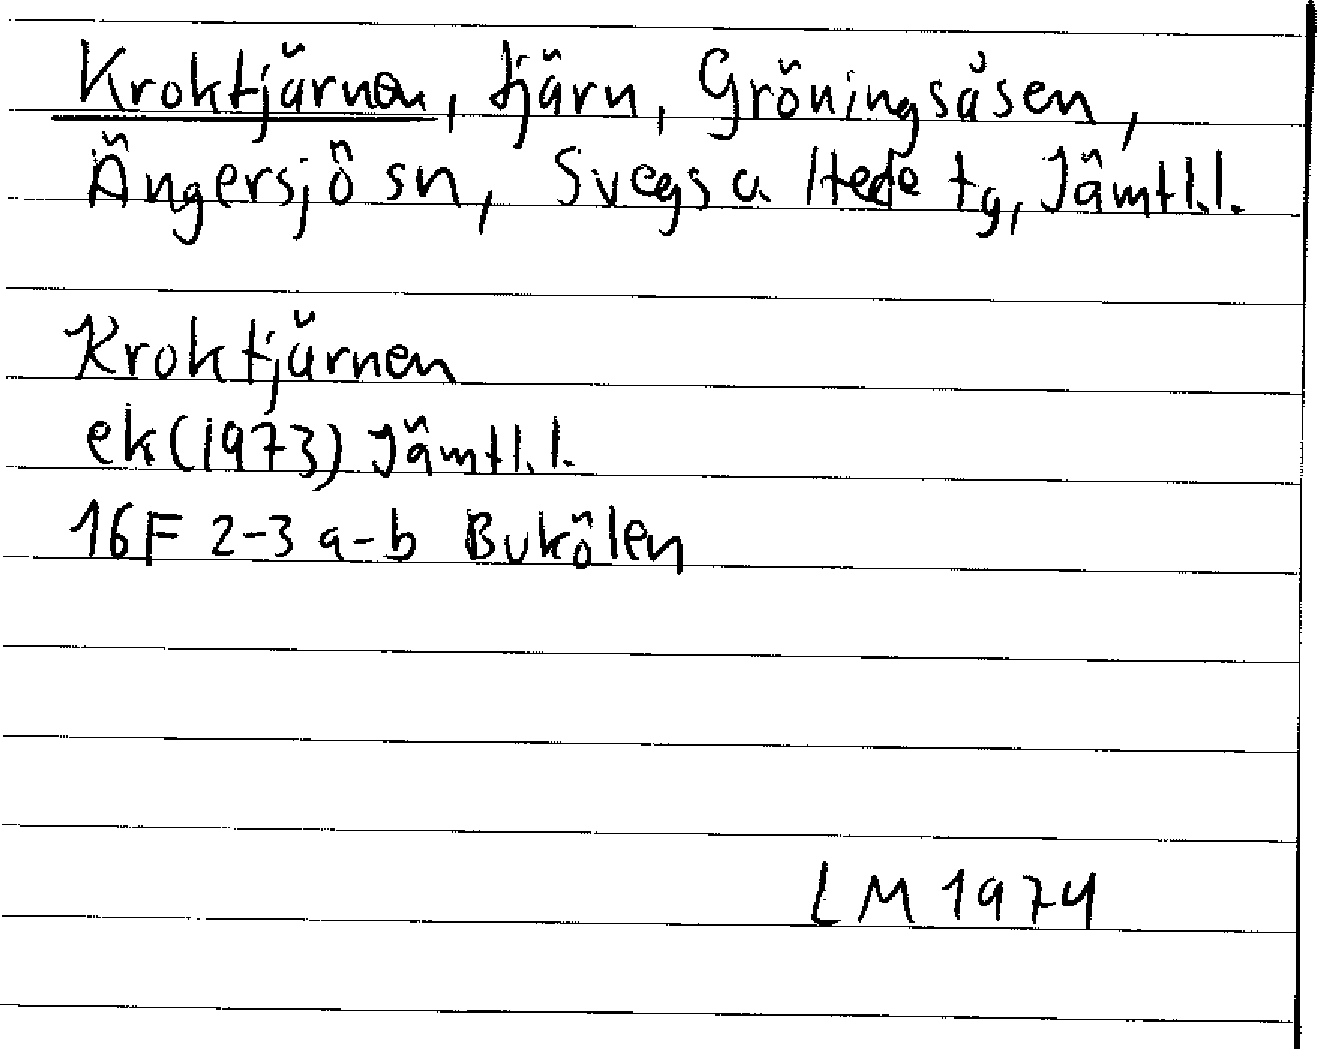 Kroktjärnen, tjärn, Gröningsåsen,
Ängersjö sn, Svegs o Hede tg, Jämtl.l.
Kroktjärnen
ek (1973) Jämtl.l.
16F 2-3 a-b Bukölen
LM 1974